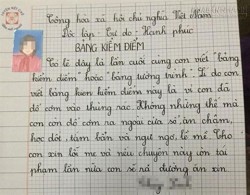 Cộng hoà xã hội chủ nghĩa Việt Nam
Độc lập - Tự do - Hạnh phúc
BẢNG KIỂM ĐIỂM
Có lẽ đây là lần cuối cùng con viết "bảng
kiểm điểm" hoặc "bảng tường trình". Lí do con
viết bảng kiểm điểm này là vì con đã
đổ cơm vào thùng rác. Không những thế mà
con còn đổ cơm ra ngoài cửa sổ, ăn chậm,
học dốt, tâm bẩn và ngu ngơ, lề mề. Cho
con xin lỗi mẹ và nếu chuyện này còn tái
phạm lần nữa con sẽ ra đường ăn xin.